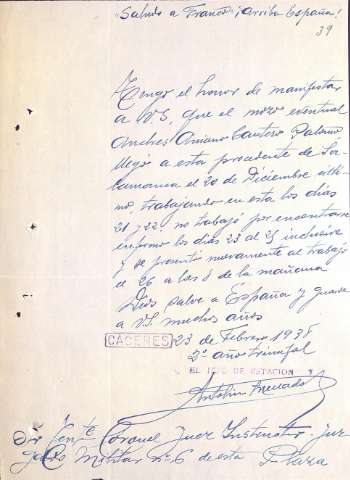 "Saludo a Franco" ¡Arriba España!
39
Tengo el honor de manifestar
a V.S. que el mozo eventual
Andrés Aniano Cantero Palomo
llegó a esta procedente de Sa-
lamanca el 20 de Diciembre últi-
mo, trabajando en esta los días
21 y 22; no trabajó por encontrarse
enfermo los días 23 al 25 inclusive
y se presentó nuevamente al trabajo
el 26 a las 8 de la mañana
Dios salve a España y guarde
a V.S. muchos años
CACERES 23 de Febrero 1938
2º año triunfal
EL JEFE DE ESTACION
Antolín
Sr Tente Coronel Juez Instructor Juz-
gado Militar nº 6 de esta Plaza